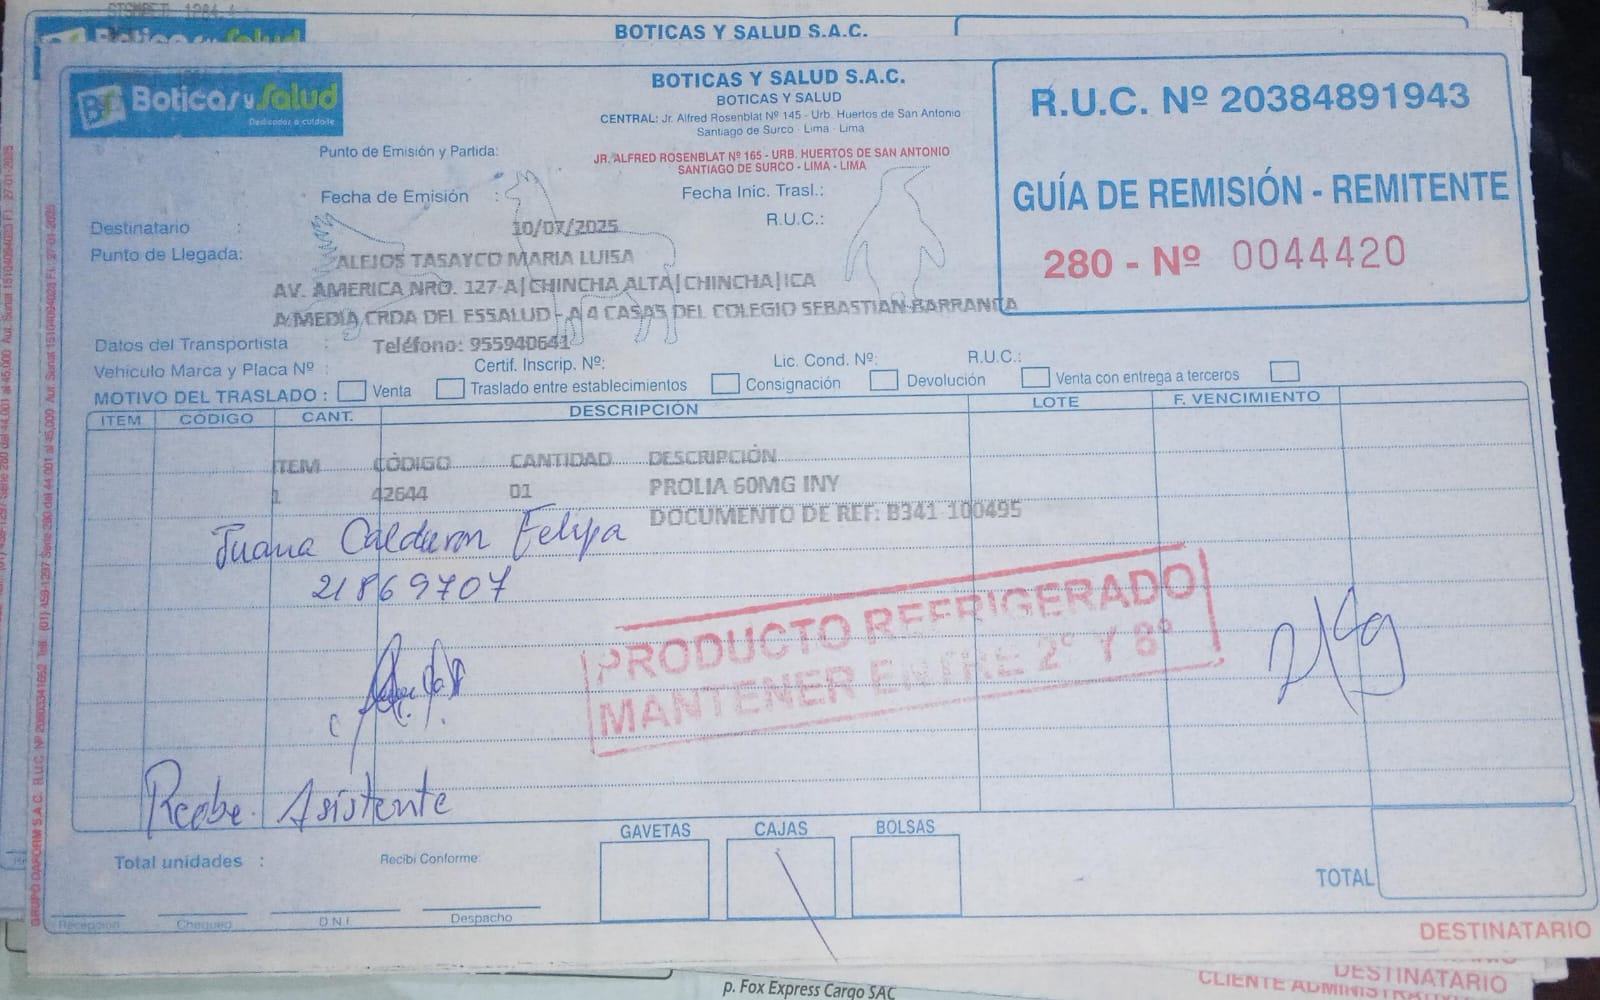 BOTICAS Y SALUD S.A.C.
Boticas y Salud
Dedicados a cuidarte
BOTICAS Y SALUD S.A.C.
BOTICAS Y SALUD
CENTRAL: Jr. Alfred Rosenblat Nº 145 - Urb. Huertos de San Antonio
Santiago de Surco - Lima - Lima
JR. ALFRED ROSENBLAT Nº 165 - URB. HUERTOS DE SAN ANTONIO
SANTIAGO DE SURCO - LIMA - LIMA
R.U.C. Nº 20384891943
GUÍA DE REMISIÓN - REMITENTE
280 - Nº 0044420
Punto de Emisión y Partida:
Fecha de Emisión :
Fecha Inic. Trasl.:
10/07/2025
R.U.C.:
Destinatario :
ALEJOS TASAYCO MARIA LUISA
Punto de Llegada:
AV. AMERICA NRO. 127-A|CHINCHA ALTA|CHINCHA|ICA
A MEDIA CRDA DEL ESSALUD - A 4 CASAS DEL COLEGIO SEBASTIAN BARRANCA
Datos del Transportista :
Teléfono: 955940641
Vehículo Marca y Placa Nº :
Certif. Inscrip. Nº:
Lic. Cond. Nº:
R.U.C.:
MOTIVO DEL TRASLADO : Venta Traslado entre establecimientos Consignación Devolución Venta con entrega a terceros
ITEM CÓDIGO CANT. DESCRIPCIÓN LOTE F. VENCIMIENTO
ITEM CÓDIGO CANTIDAD DESCRIPCIÓN
1 42644 01 PROLIA 60MG INY
DOCUMENTO DE REF: B341 100495
Juana Calderon Felipa
21869707
PRODUCTO REFRIGERADO
MANTENER ENTRE 2° Y 8°
Recibe. Asistente
GAVETAS CAJAS BOLSAS
Total unidades :
Recibí Conforme:
TOTAL
Recepción Chequeo D.N.I. Despacho
DESTINATARIO
DESTINATARIO
p. Fox Express Cargo SAC